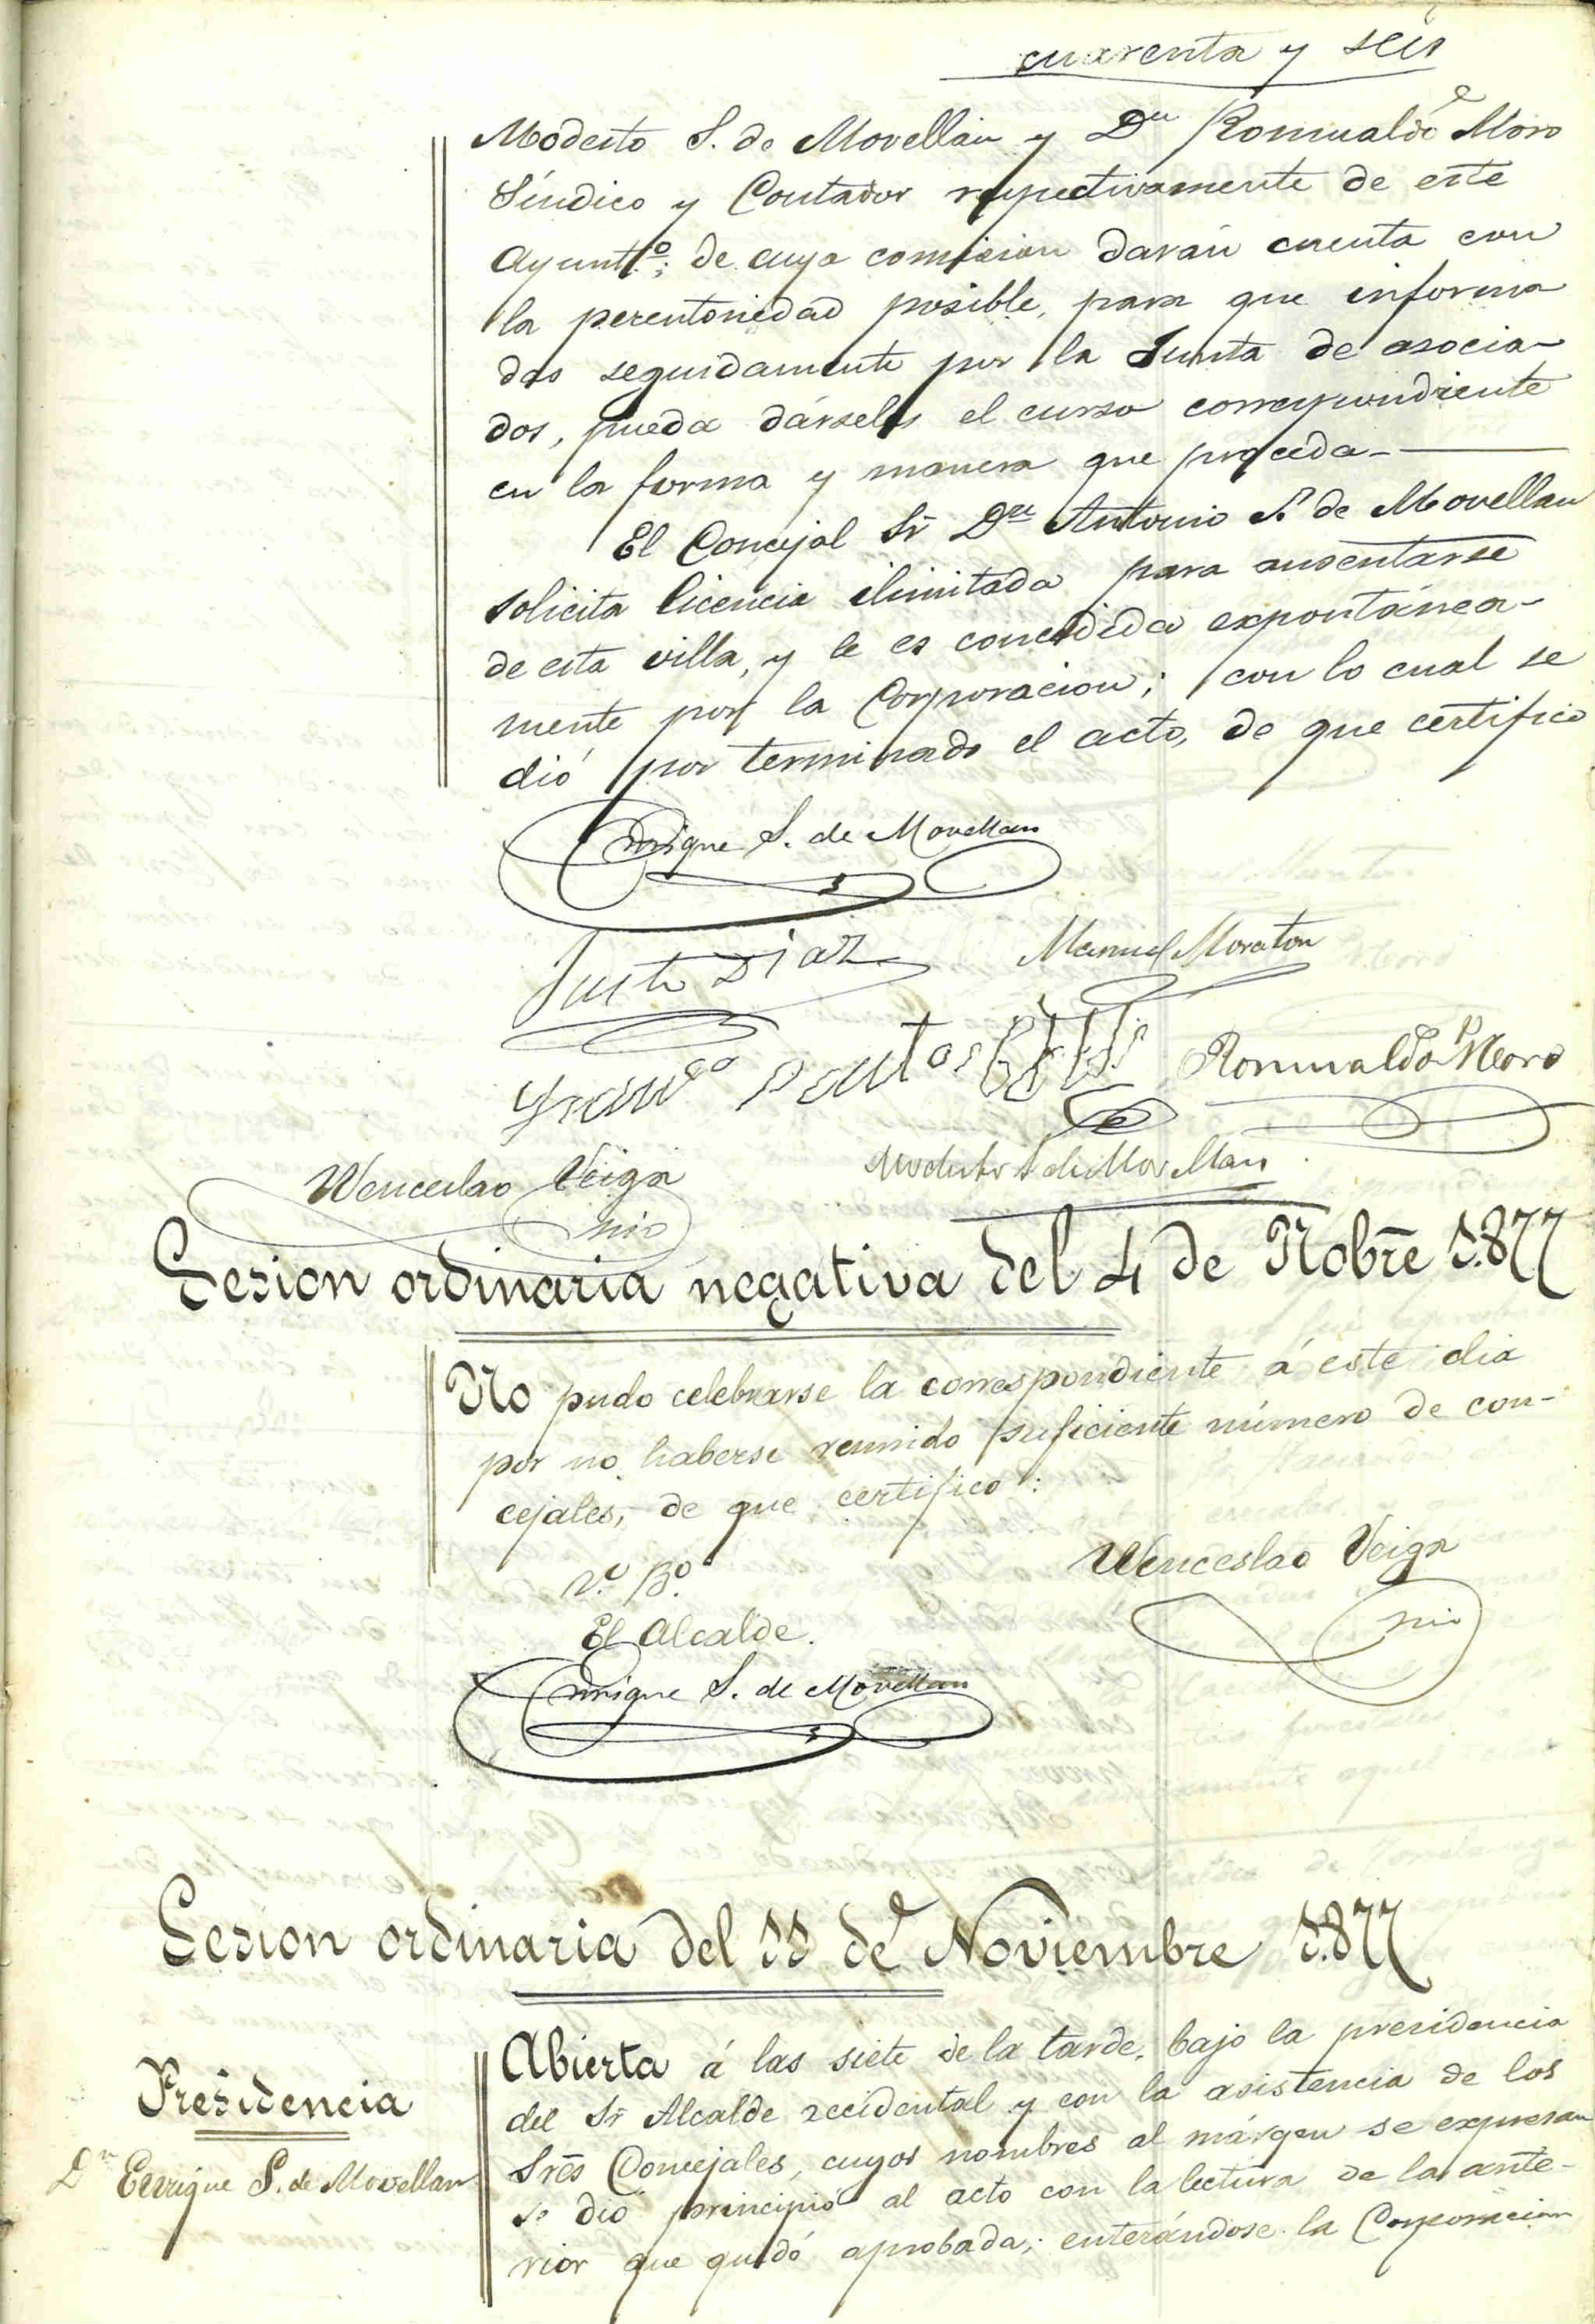 cuarenta y seis
Modesto S. de Movellán y Dn Romualdo Moro
Síndico y Contador respectivamente de este
Ayuntº; de cuya comision darán cuenta con
la perentoriedad posible, para que informa
das seguidamente por la Junta de asocia-
dos, pueda dárseles el curso correspondiente
en la forma y manera que proceda-
El Concejal Sr Dn Antonio S. de Movellan
solicita licencia ilimitada para ausentarse
de esta villa, y le es concedida expontánea-
mente por la Corporacion; con lo cual se
dió por terminado el acto, de que certifico
Enrique S. de Movellan
Justo Diaz
Manuel Moraton
Francº
Romualdo Moro
Wenceslao Veiga
srio
Modesto S de Movellan
Sesion ordinaria negativa del 4 de Nobre 1.877
No pudo celebrarse la correspondiente á este dia
por no haberse reunido suficiente número de con-
cejales, de que certifico:
Vº Bº
El Alcalde.
Wenceslao Veiga
srio
Enrique S. de Movellan
Sesion ordinaria del 11 de Noviembre 1.877
Presidencia
Dn Enrique S. de Movellan
Abierta á las siete de la tarde, bajo la presidencia
del Sr Alcalde accidental y con la asistencia de los
Sres Concejales, cuyos nombres al márgen se expresan
se dió principió al acto con la lectura de la ante-
rior que quedó aprobada; enterándose la Corporacion